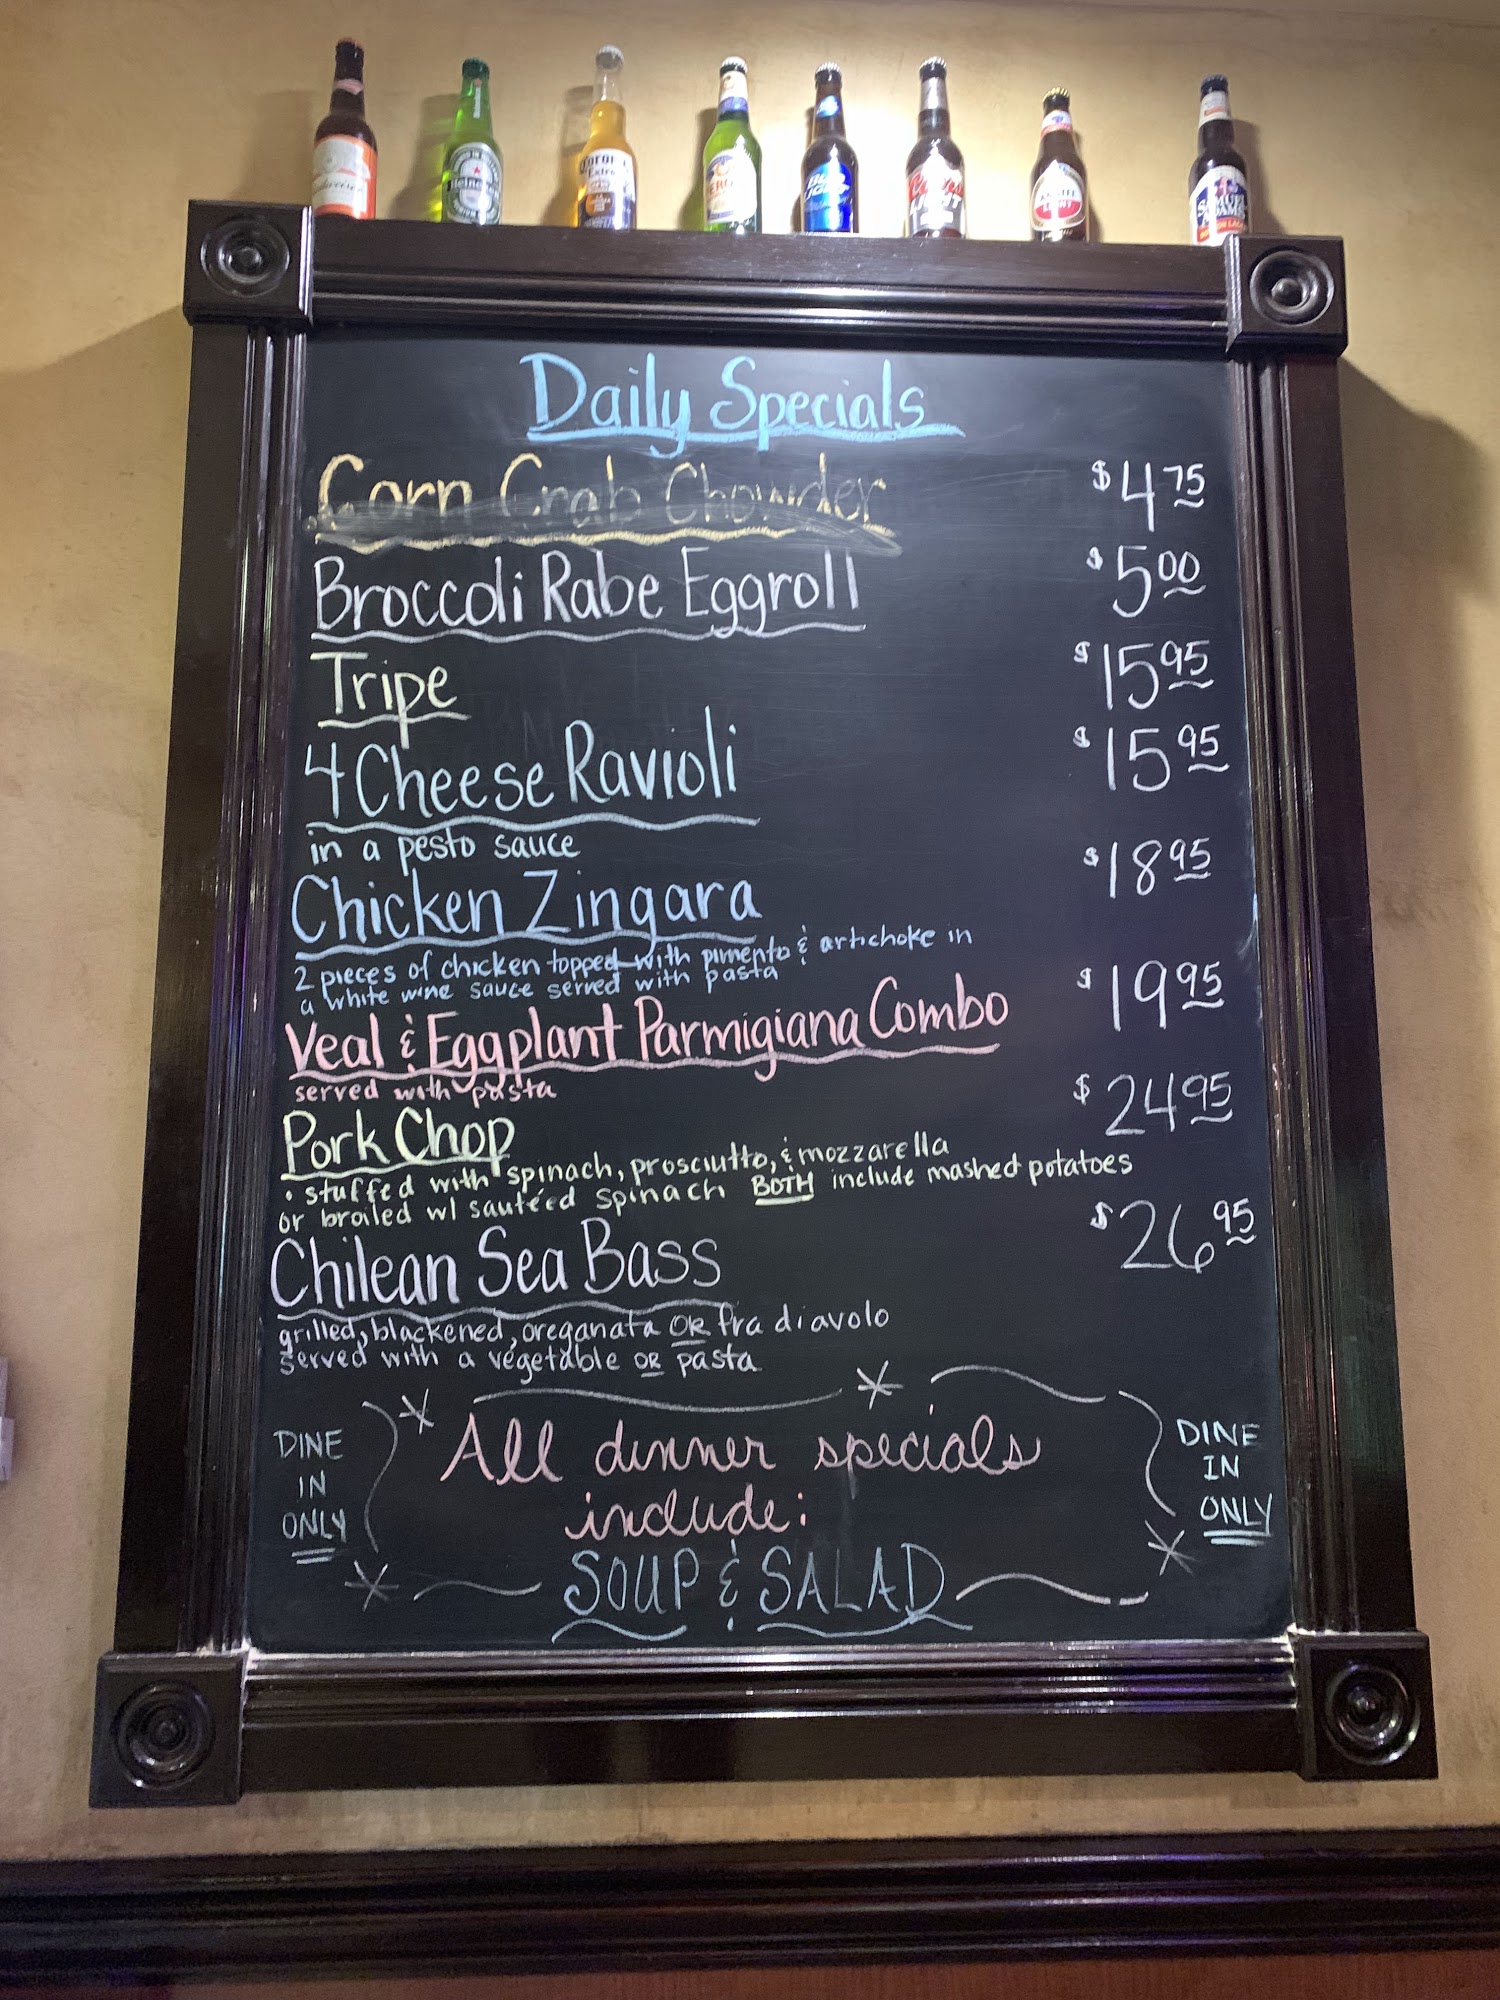 Budweiser
Heineken
Corona
Extra
Bud
Light
Coors
LIGHT
AMSTEL
LIGHT
SAMUEL
ADAMS
Daily Specials
Corn Crab Chowder $4.75
Broccoli Rabe Eggroll $5.00
Tripe $15.95
4 Cheese Ravioli $15.95
in a pesto sauce
Chicken Zingara $18.95
2 pieces of chicken topped with pimento & artichoke in
a white wine sauce served with pasta
Veal & Eggplant Parmigiana Combo $19.95
served with pasta
Pork Chop $24.95
• stuffed with spinach, prosciutto, & mozzarella
or broiled w/ sautéed spinach BOTH include mashed potatoes
Chilean Sea Bass $26.95
grilled, blackened, oreganata OR fra diavolo
served with a vegetable OR pasta
DINE
IN
ONLY
All dinner specials
include:
SOUP & SALAD
DINE
IN
ONLY